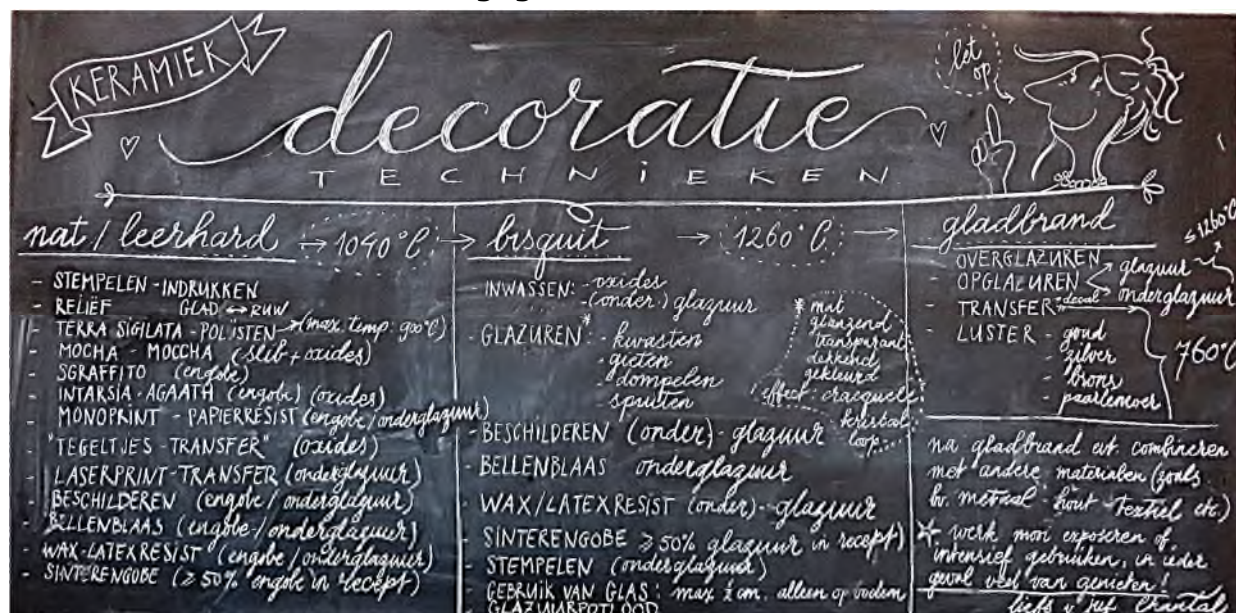 KERAMIEK
decoratie
TECHNIEKEN
let op
nat / leerhard
↔ 1040°C →
- STEMPELEN - INDRUKKEN
- RELIËF GLAD ↔ RUW
- TERRA SIGILATA - POLISTEN → (max. temp: 900°C)
- MOCHA - MOCCHA (slib + oxides)
- SGRAFFITO (engobe)
- INTARSIA - AGAATH (engobe) (oxides)
- MONOPRINT - PAPIERRESIST (engobe / onderglazuur)
- "TEGELTJES - TRANSFER" (oxides)
- LASERPRINT - TRANSFER (onderglazuur)
- BESCHILDEREN (engobe / onderglazuur)
- BELLENBLAAS (engobe / onderglazuur)
- WAX - LATEXRESIST (engobe / onderglazuur)
- SINTERENGOBE (≥ 50% engobe in recept)
bisquit
→ 1260°C →
- INWASSEN: - oxides
- (onder-) glazuur
- GLAZUREN*: - kwasten
- gieten
- dompelen
- spuiten
* mat
glanzend
transparant
dekkend
gekleurd
effect: cracquele
kristal
loop...
- BESCHILDEREN (onder) - glazuur
- BELLENBLAAS onderglazuur
- WAX/LATEXRESIST (onder) - glazuur
- SINTERENGOBE ≥ 50% glazuur in recept)
- STEMPELEN (onderglazuur)
- GEBRUIK VAN GLAS: max ½ cm. alleen op bodem
GLAZUURPOTLOOD
gladbrand
≤ 1260°C
- OVERGLAZUREN
- OPGLAZUREN < glazuur
onderglazuur
- TRANSFER "decal"
- LUSTER - goud
- zilver
- brons
- paarlemoer
760°C
na gladbrand evt. combineren
met andere materialen (zoals
bv. metaal - hout - textiel etc.)
* werk mooi exposeren of
intensief gebruiken, in ieder
geval veel van genieten!
liefs, juf